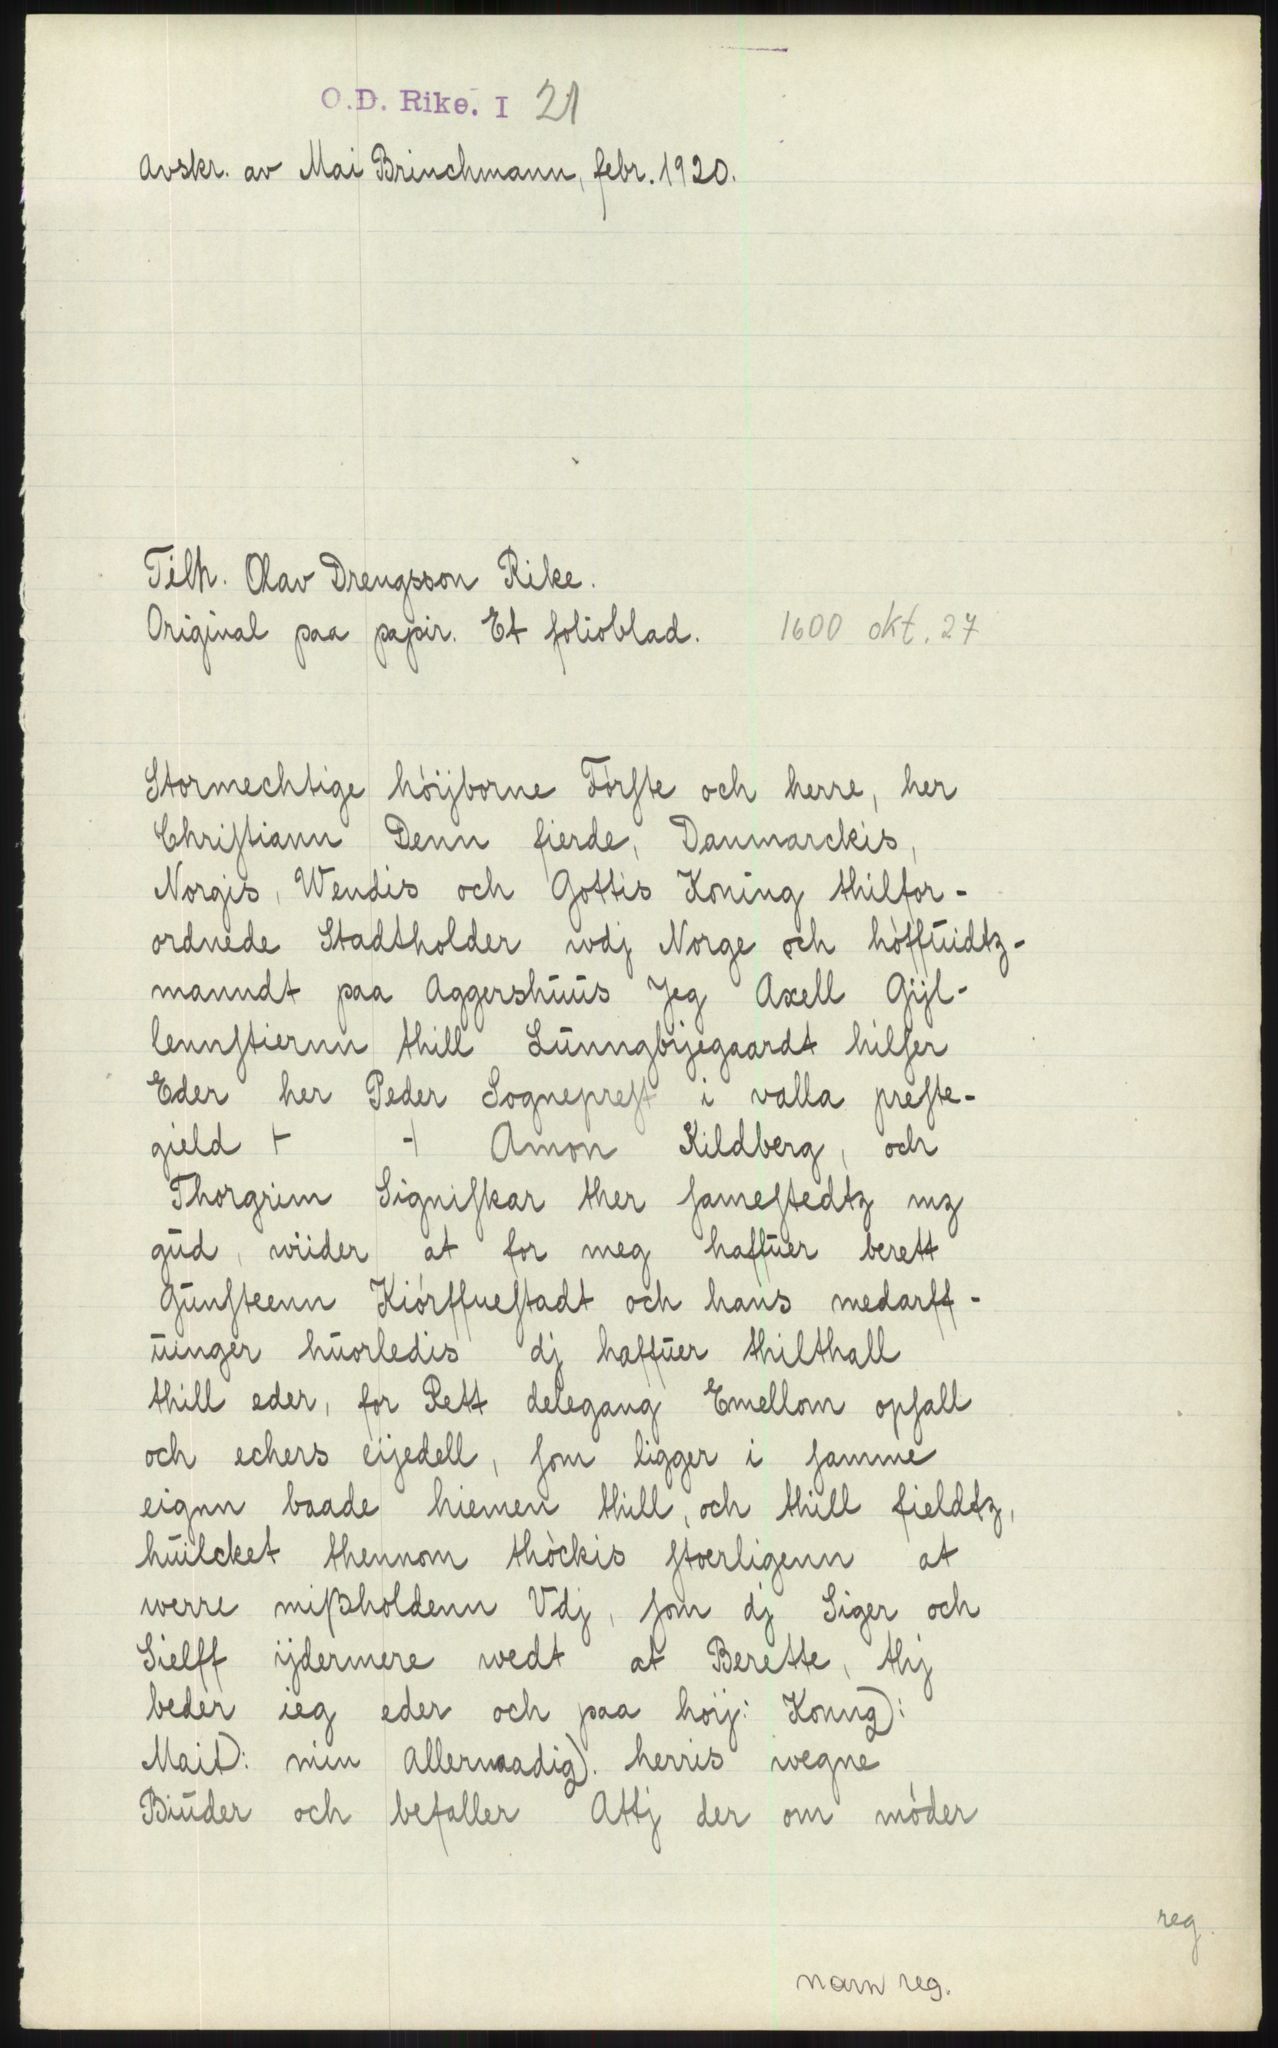 O.D. Rike. I 21
Avskr. av Mai Brinchmann, febr. 1920.
Tilh. Olav Drengsson Rike.
Original paa papir. Et folioblad. 1600 okt. 27
Stormechtige höijborne Förſte och herre, her
Chriſtiann Denn fierde, Danmarckis,
Norgis, Wendis och Gottis Koning thilfor-
ordnede Stadtholder wdj Norge och höffŭidtz-
manndt paa Aggershŭŭs Jeg Axell Gijl-
lennſtiernn thill Lŭnngbijegaardt hilſer
Eder her Peder Sogneprest i valla preſte-
gield + + Amon Kildberg, och
Thorgrim Signiſkar ther ſameſtedtz mz
gŭd, wiider at for meg haffŭer berett
Gŭnſteenn Kiörffueſtadt och hans medarff-
ŭinger hŭorledis dj haffŭer thilthall
thill eder, for Rett delegang Emellom opſall
och echers eijedell, ſom ligger i ſamme
eignn baade hiemen thill, och thill fieldtz,
hŭilcket thennom thöckis ſtoerligenn at
werre mißholdenn Vdj, ſom dj Siger och
Sielff ijdermere wedt at Berette, thj
beder ieg eder och paa höij: Konng):
Mait): min Allernaadig). herris wegne
Biŭder och befaller Attj der om möder
reg.
navn reg.